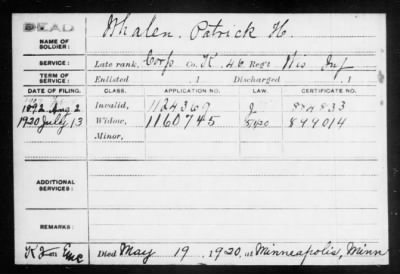 DEAD
NAME OF SOLDIER: Whalen, Patrick H.
SERVICE: Late rank, Corp Co. K, 46 Reg't Wis Inf
TERM OF SERVICE: Enlisted , 1 Discharged , 1
DATE OF FILING. CLASS. APPLICATION NO. LAW. CERTIFICATE NO.
1892 Aug 2 Invalid, 1124369 J 884833
1920 July 13 Widow, 1160745 894014
Minor,
ADDITIONAL SERVICES:
REMARKS:
Died May 19, 1920, at Minneapolis, Minn